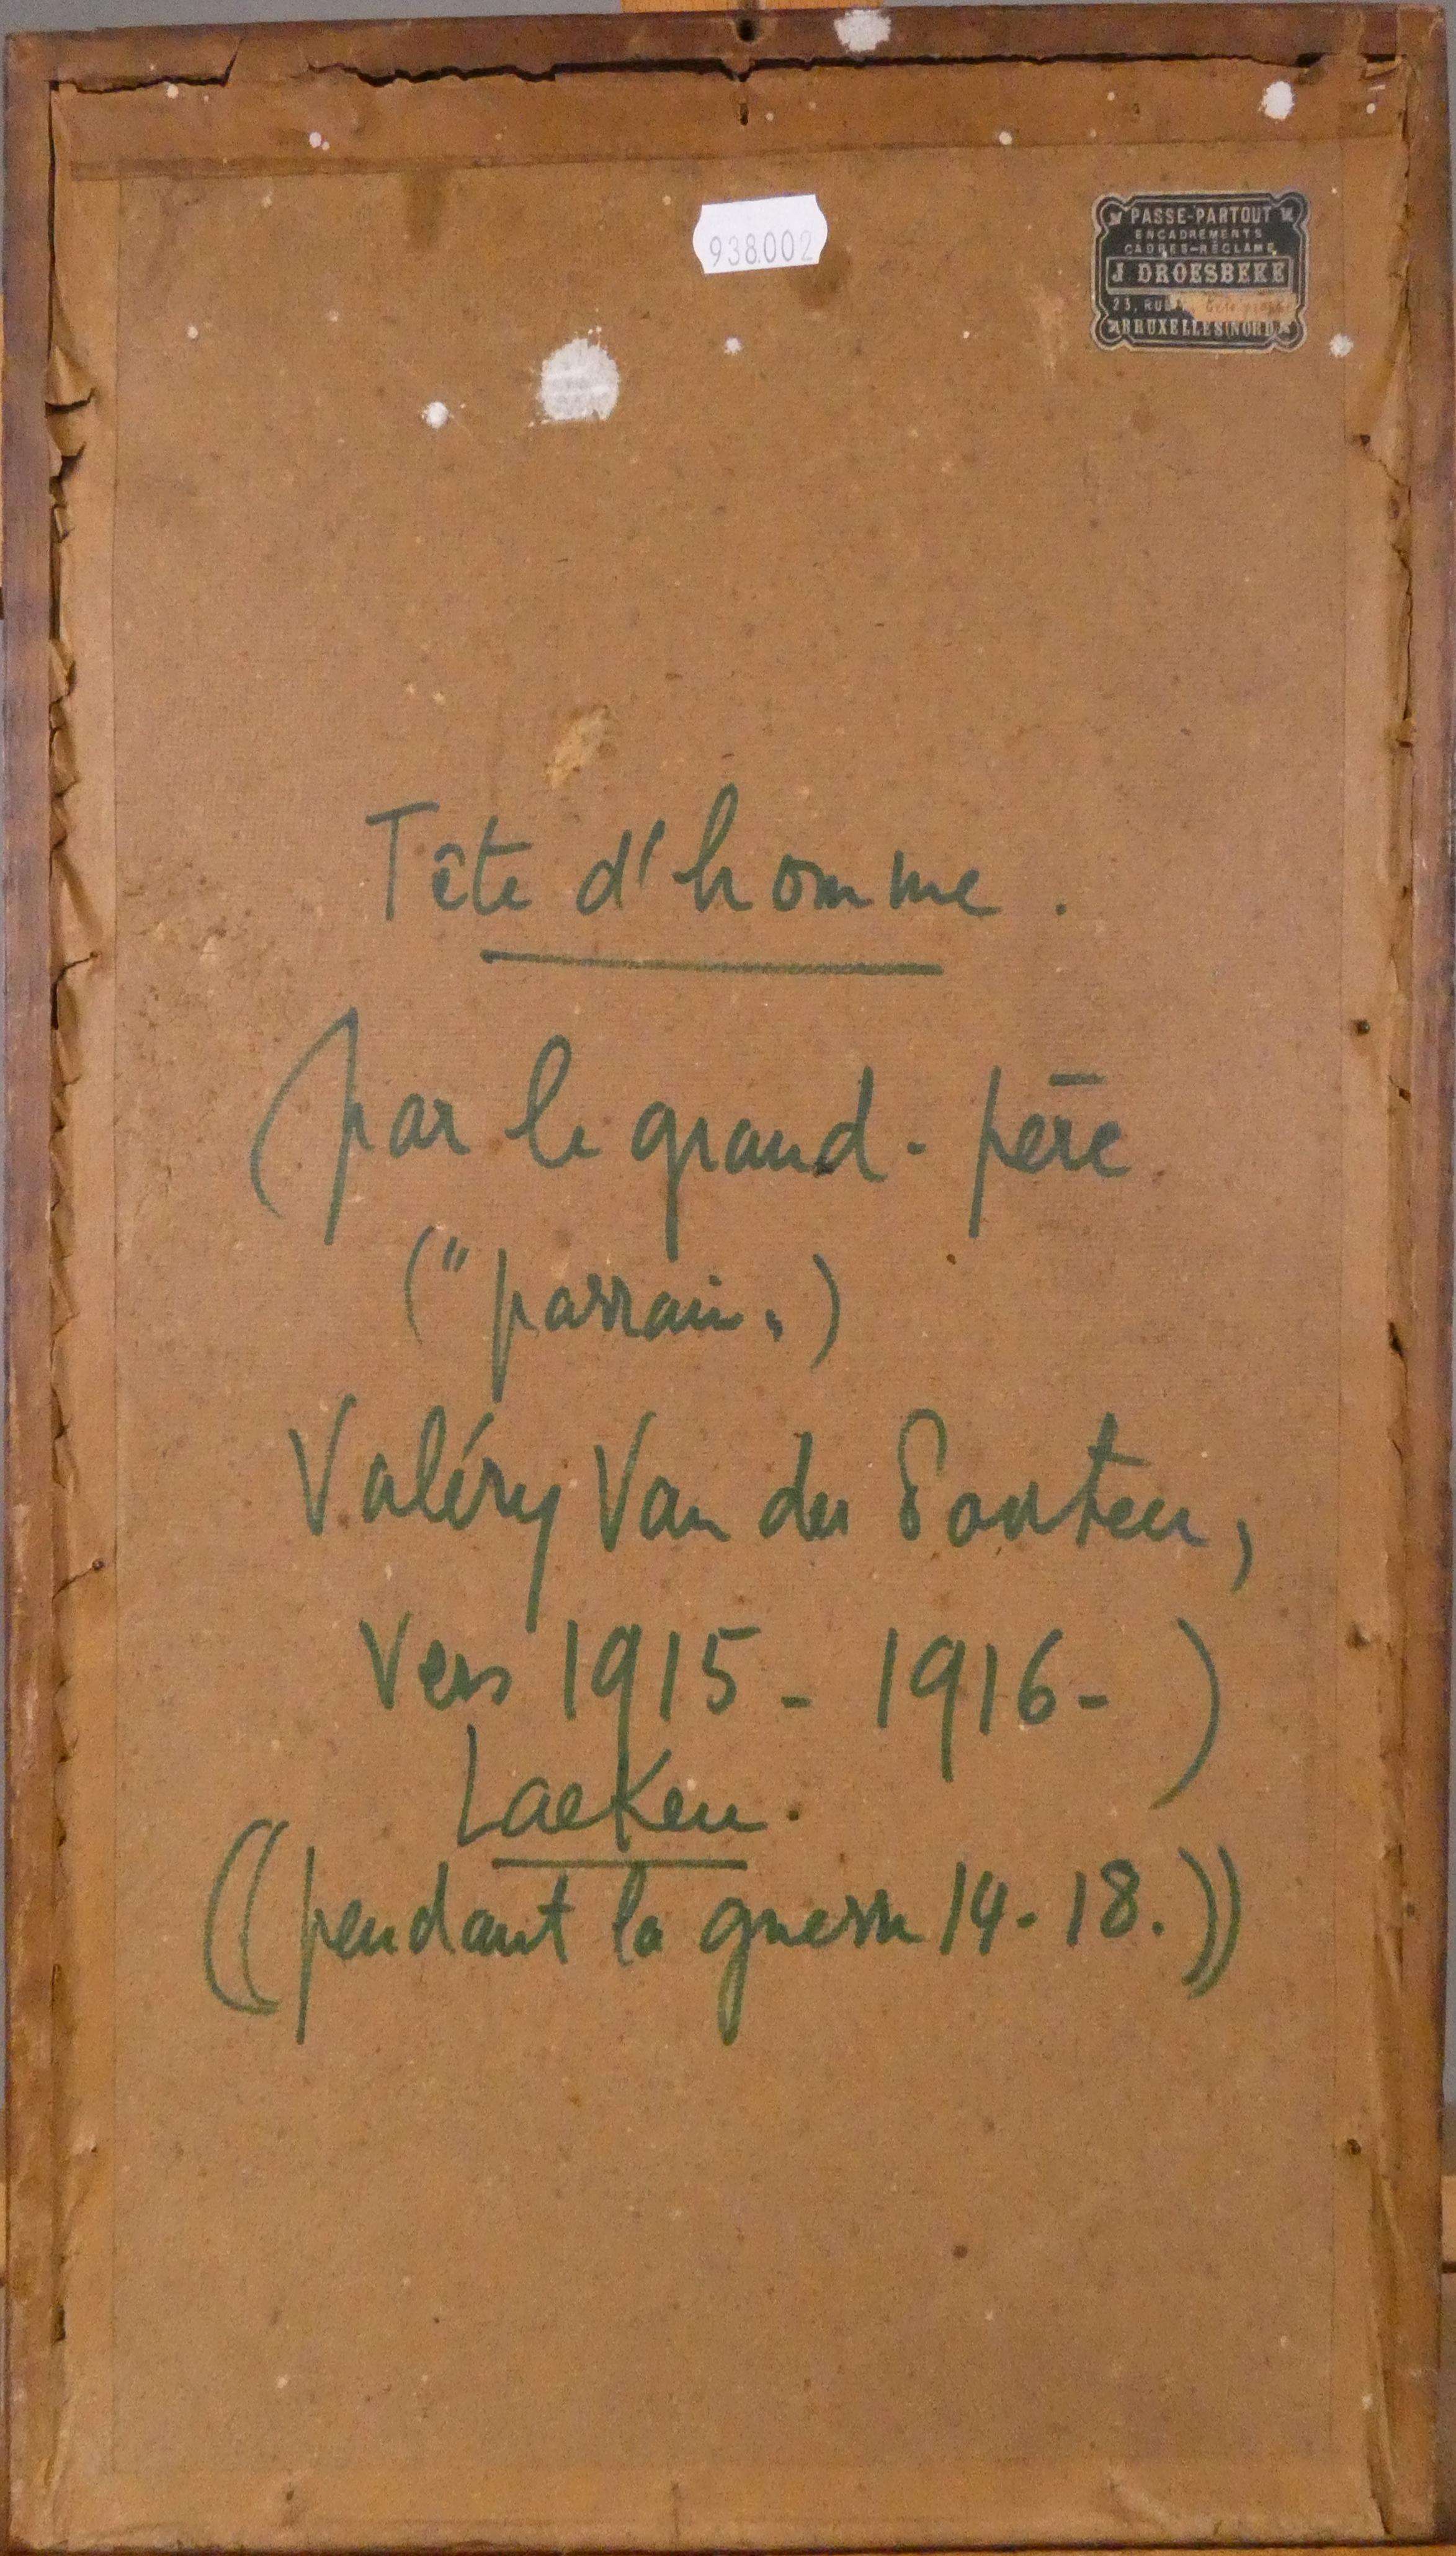 938.002
PASSE-PARTOUT
ENCADREMENTS
CADRES-RÉCLAME
J. DROESBEKE
23, RUE
BRUXELLES(NORD)
Tête d'homme.
(par le grand-père
("parrain")
Valéry Van der Pouten,
Vers 1915 - 1916 - )
Laeken.
((pendant la guerre 14-18.))